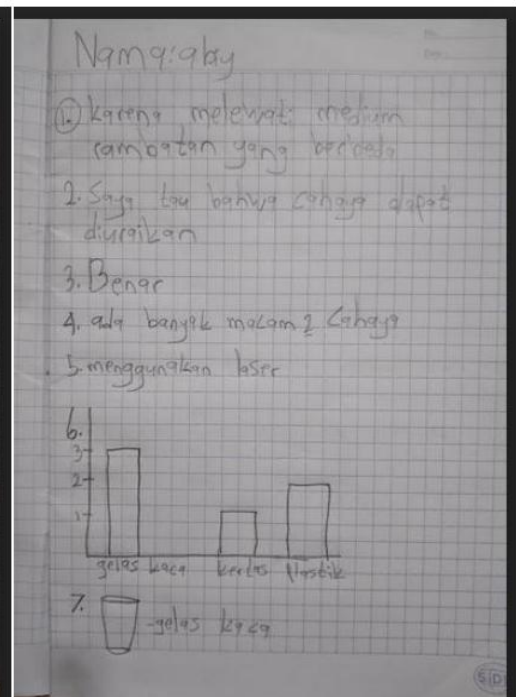 Nama: abay
1. Karena melewati medium
rambatan yang berbeda
2. Saya tau bahwa cahaya dapat
diuraikan
3. Benar
4. ada banyak macam2 cahaya
5. menggunakan laser
6.
3
2
1
gelas kaca kertas Plastik
7. -gelas kaca
SiDU